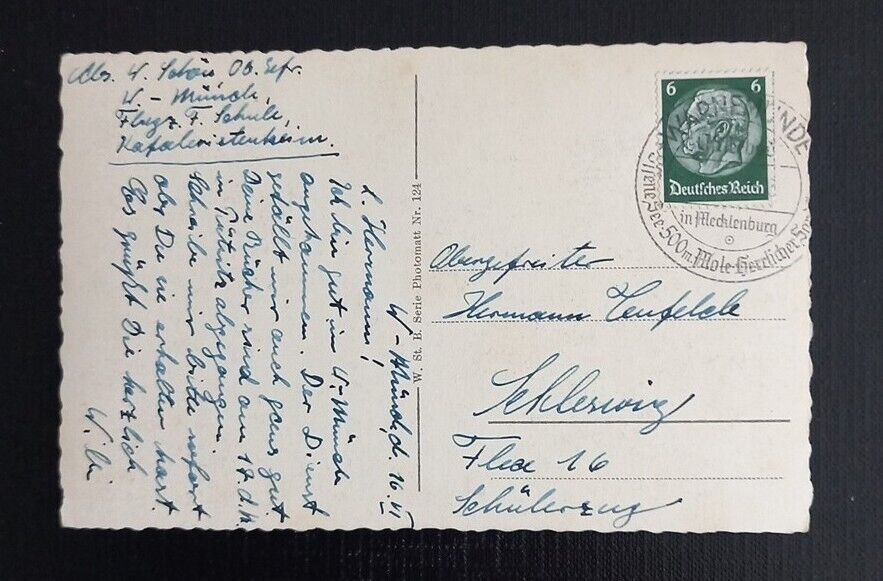 Abs. W. Schön OB. Gefr.
W-Münde,
Flugz. F. Schule,
W-Münde, d. 16. VI
L. Hermann!
Ich bin gut in W-Münde
angekommen. Der Dienst
gefällt mir auch ganz gut
Deine Bücher sind am 17. d. M.
in Pütnitz abgegangen.
Schreibe mir bitte sofort
ob Du sie erhalten hast.
Es grüßt Dich herzlich
Willi
W. St. B. Serie Photomatt Nr. 124
6 6
Deutsches Reich
WARNEMÜNDE
in Mecklenburg
Offene See-500m Mole-Herrlicher
Obergefreiter
Hermann Teufelde
Schleswig
16
Schülerzug